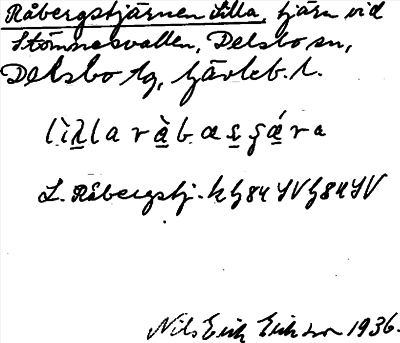 Råbergstjärnen Lilla, tjärn vid
Stömnesvallen, Delsbo sn,
Delsbo tg, Gävleb. l.
L. Råbergstj. k G84 SV G84 SV
Nils Erik Eriksson 1936.